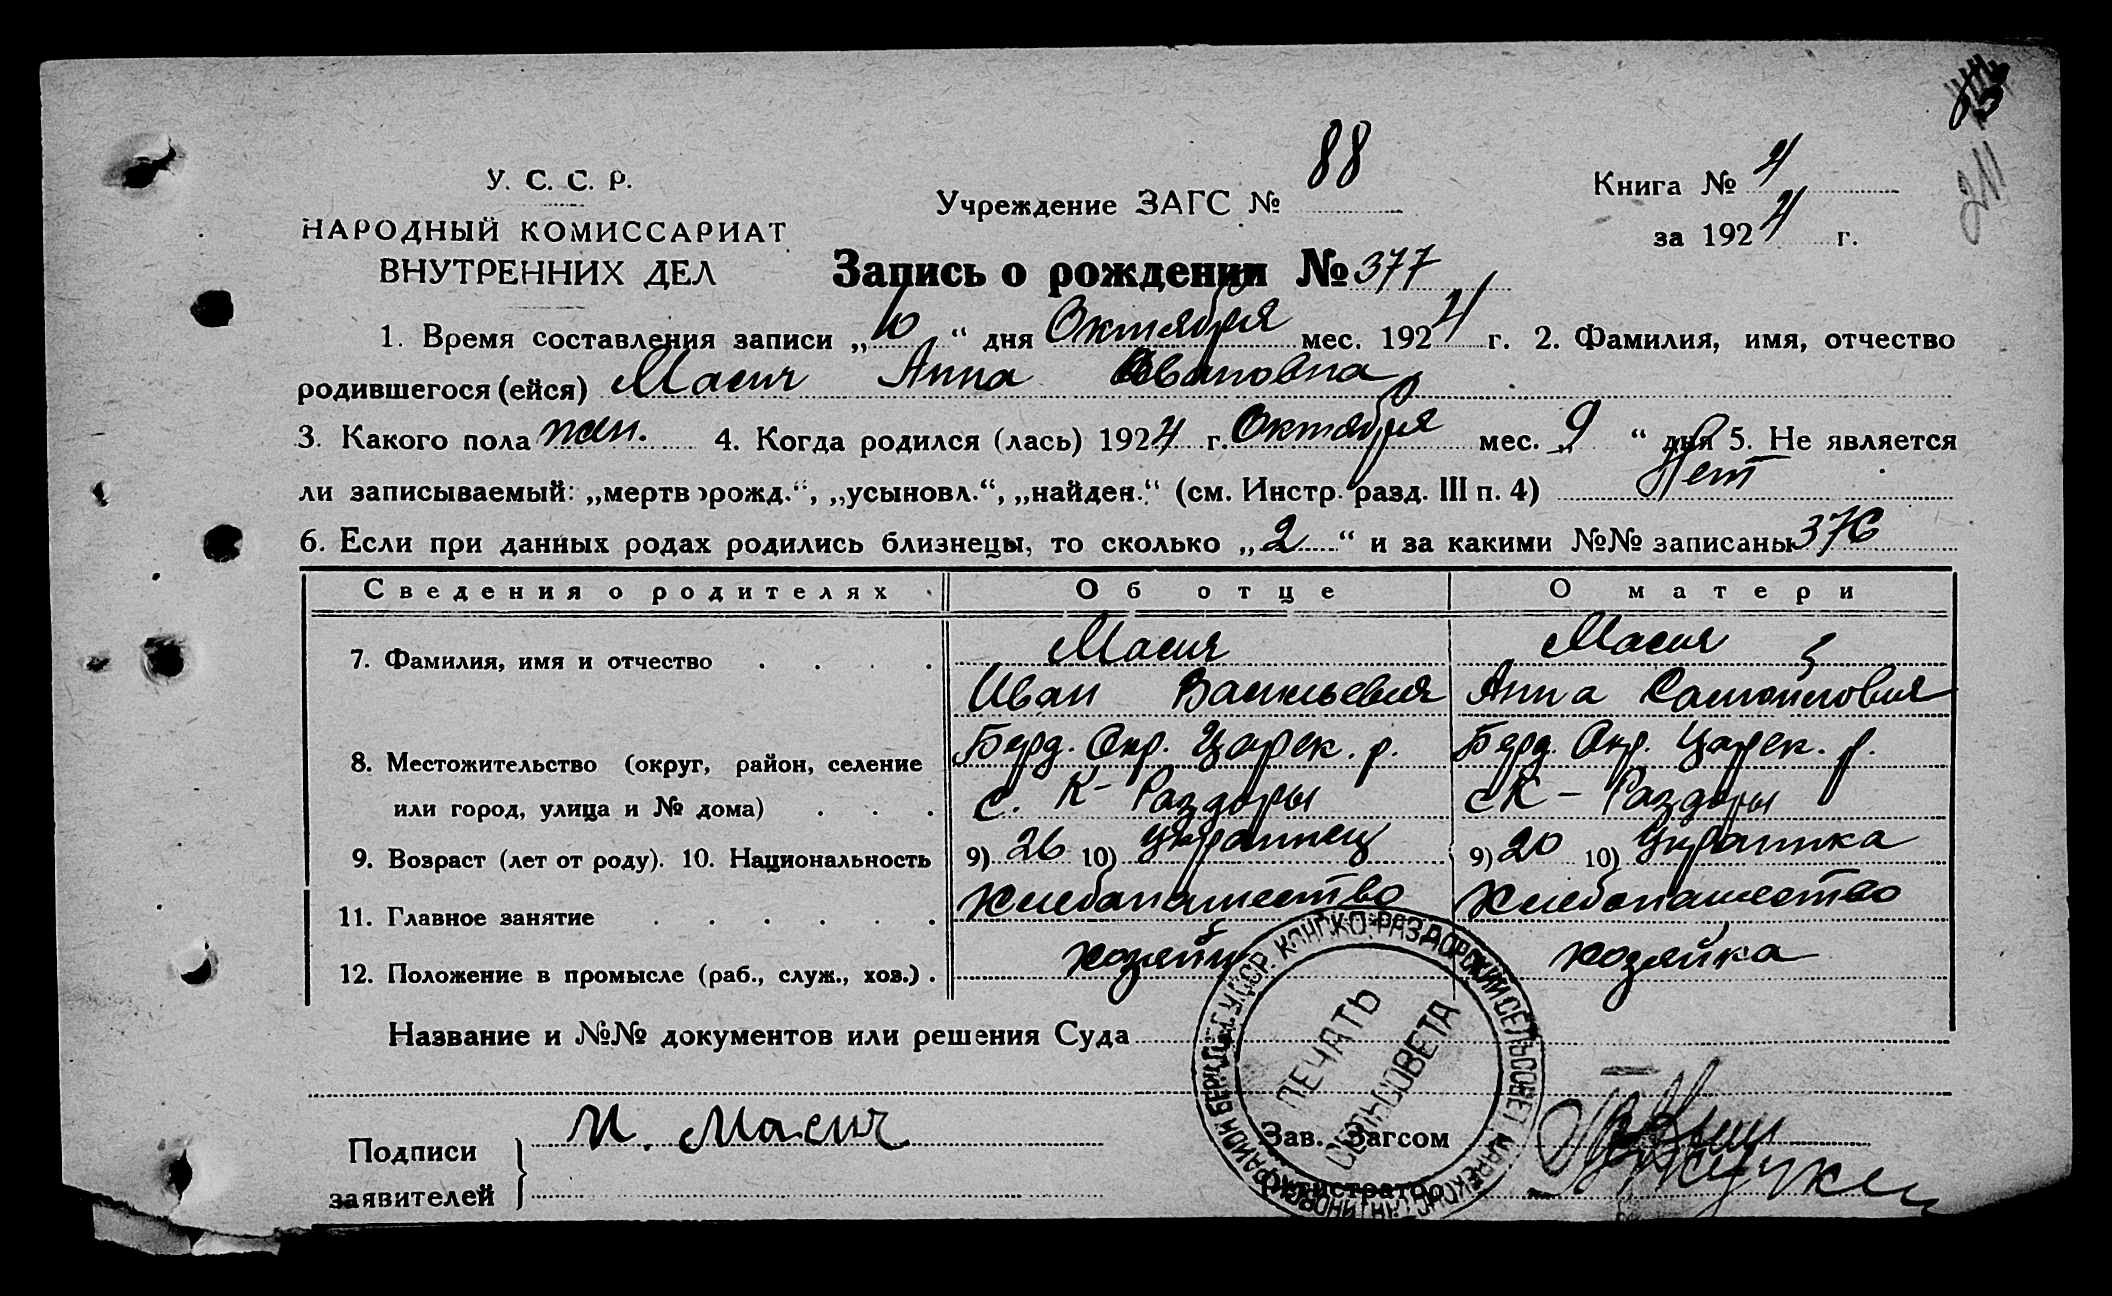 88
У. С. С. Р.
Учреждение ЗАГС №
Книга № 4
211
НАРОДНЫЙ КОМИССАРИАТ
за 1924 г.
ВНУТРЕННИХ ДЕЛ
Запись о рождении № 377
1. Время составления записи „10“ дня Октября мес. 1924 г. 2. Фамилия, имя, отчество
родившегося (ейся) Масич Анна Ивановна
3. Какого пола жен. 4. Когда родился (лась) 1924 г. Октября мес. „9“ дня 5. Не является
ли записываемый: „мертворожд.“, „усыновл.“, „найден.“ (см. Инстр. разд. III п. 4) Нет
6. Если при данных родах родились близнецы, то сколько „2“ и за какими №№ записаны 376
Сведения о родителях Об отце О матери
7. Фамилия, имя и отчество . . . . Масич Масич
Иван Васильевич Анна Самойловия
Берд. Окр. Царек. р. Берд. Окр. Царек. р.
8. Местожительство (округ, район, селение
с. К-Раздоры с К-Раздоры
или город, улица и № дома) . . .
9. Возраст (лет от роду). 10. Национальность 9) 26 10) Украинец 9) 20 10) Украинка
11. Главное занятие . . . . . . Хлебопашество Хлебопашество
12. Положение в промысле (раб., служ., хоз.) . хозяин хозяйка
Название и №№ документов или решения Суда
У.С.С.Р. КАНСКО-РАЗДОРСКИЙ СЕЛЬСОВЕТ ЦАРЕКОНСТАНТИНОВСК. РАЙОН
ПЕЧАТЬ
СЕЛЬСОВЕТА
Подписи
заявителей
И. Масич
Зав. Загсом
Регистратор